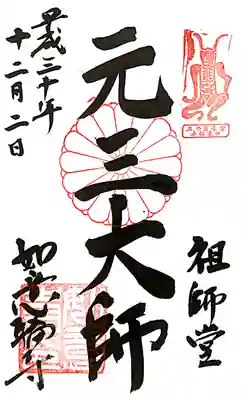 祖師堂
元三大師
平成三十年
十二月二日
如意輪寺